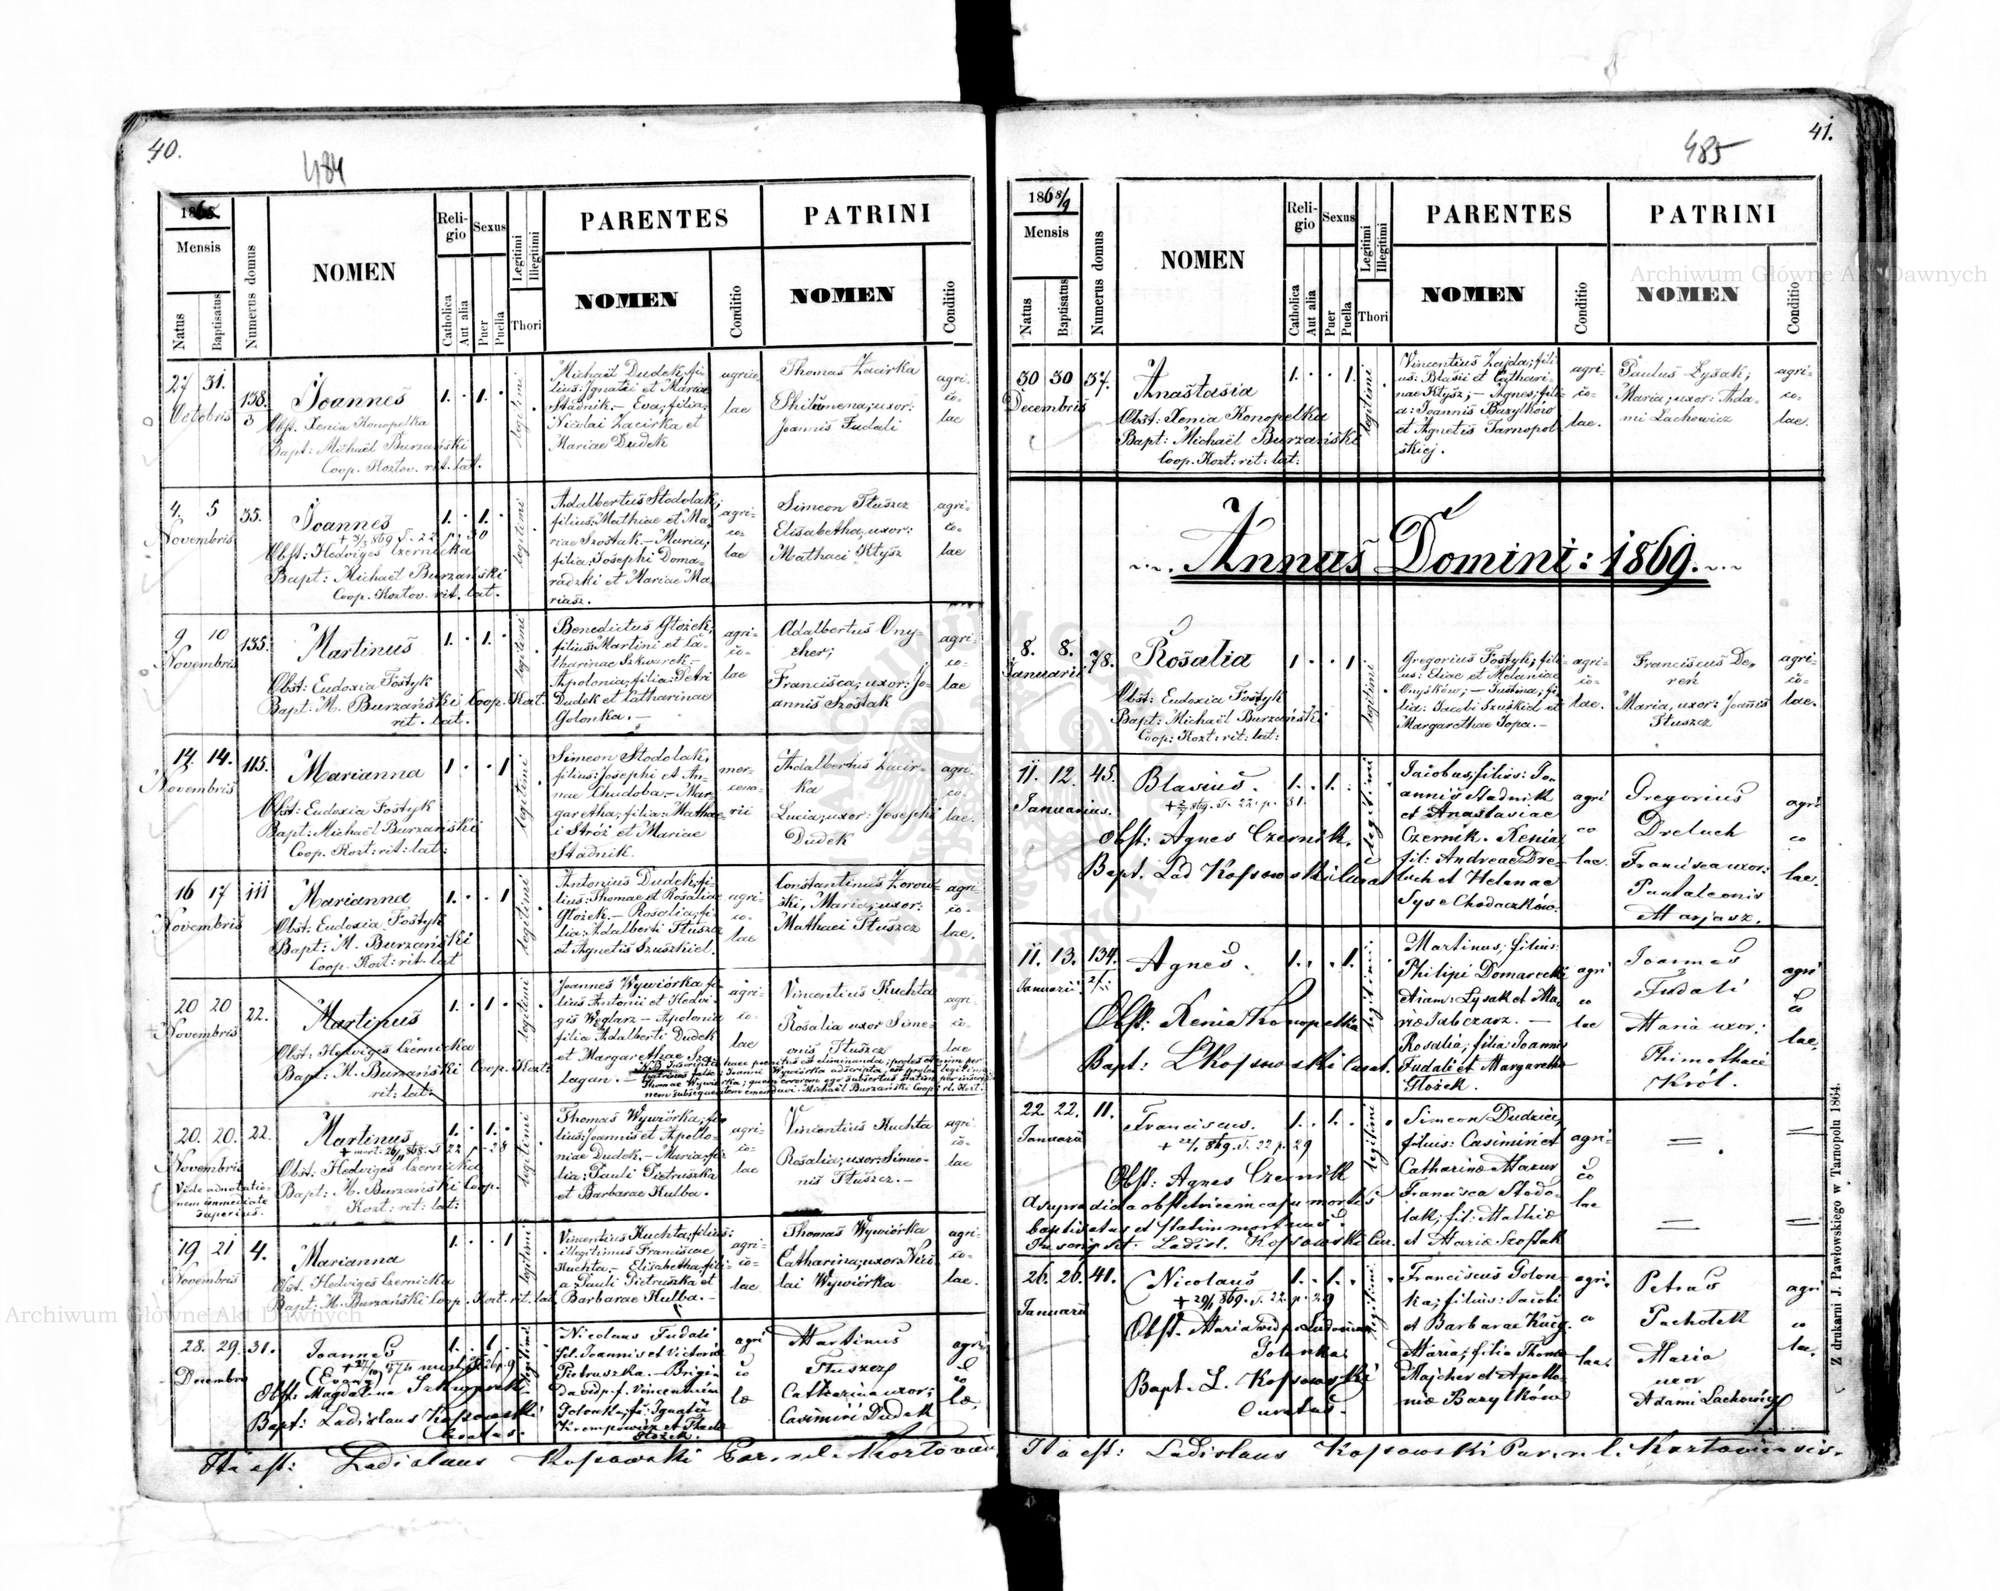 40.
484
1868.
Mensis
Natus
Baptisatus
Numerus domus
NOMEN
Reli-
gio
Catholica
Aut alia
Sexus
Puer
Puella
Legitimi
Illegitimi
Thori
PARENTES
NOMEN
Conditio
PATRINI
NOMEN
Conditio
27 31.
Octobris
138.
3
Joannes
Obst. Xenia Konopelka
Bapt: Michaël Burzański
Coop. Koztov. rit. lat.
1. · 1. ·
legitimi
Michaël Dudek, fi-
lius: Ignatii et Mariae
Stadnik. – Eva, filia:
Nicolai Zacirka et
Mariae Dudek
agrico-
lae
Thomas Zacirka
Philomena; uxor:
Joannis Fudali
agri-
co-
lae
4. 5
Novembris
35.
Joannes
Obst: Hedviges Czernicka
Bapt: Michaël Burzański
Coop. Koztov. rit. lat.
1. · 1. ·
legitimi
Adalbertus Stodolak;
filius: Mathiae et Ma-
riae Szostak. – Maria;
filia: Josephi Doma-
radzki et Mariae Ma-
riasz.
agri-
co-
lae
Simeon Tłuszcz
Elisabetha, uxor:
Mathaei Kłysz
agri-
co-
lae
9. 10
Novembris
135.
Martinus
Obst: Eudoxia Fostyk
Bapt: M. Burzański Coop. Kozt.
rit. lat.
1. · 1. ·
legitimi
Benedictus Głożek,
filius: Martini et Ca-
tharinae Skwarek. –
Apolonia, filia: Petri
Dudek et Catharinae
Golonka. –
agri-
co-
lae
Adalbertus Ony-
cher;
Francisca; uxor: Jo-
annis Szostak
agri-
co-
lae
14. 14.
Novembris
115.
Marianna
Obst: Eudoxia Fostyk
Bapt: Michaël Burzański
Coop. Kozt: rit: lat:
1 · · 1
legitimi
Simeon Stodolak,
filius: Josephi et An-
nae Chudoba. – Mar-
garetha; filia: Mathae-
i Stróż et Mariae
Stadnik.
mer-
cena-
rii
Adalbertus Zacir-
ka
Lucia; uxor: Josephi
Dudek
agri-
co-
lae.
16 17
Novembris
111
Marianna
Obst: Eudoxia Fostyk
Bapt: M. Burzański
Coop. Kozt: rit: lat
1. · · 1
legitimi
Antonius Dudek, fi-
lius: Thomae et Rosaliae
Głożek. – Rosalia, fi-
lia: Adalberti Tłuszcz
et Agnetis Szuszkiel.
agri-
co-
lae
Constantinus Zorow-
ski, Maria, uxor:
Mathaei Tłuszcz
agri-
co-
lae.
20 20
Novembris
22.
Martinus
Obst: Hedviges Czernicka
Bapt: M. Burzański Coop. Kozt:
rit: lat:
1. · 1 ·
legitimi
Joannes Wywiórka fi-
lius Antonii et Hedvi-
gis Węglarz – Apolonia
filia Adalberti Dudek
et Margarethae Sza-
lagan. –
agri-
co-
lae
Vincentius Kuchta
Rosalia uxor Sime-
onis Tłuszcz
agri-
co-
lae
20. 20.
Novembris
Vide adnotatio-
nem immediate
superius.
22.
Martinus
Obst. Hedviges Czernicka
Bapt: M. Burzański Coop.
Kozt: rit: lat:
1. · 1. ·
legitimi
Thomas Wywiórka, fi-
lius: Joannis et Apollo-
niae Dudek. – Maria, fi-
lia: Pauli Pietruszka
et Barbarae Kulba.
agri-
co-
lae
Vincentius Kuchta
Rosalia; uxor: Simeo-
nis Tłuszcz. –
agri-
co-
lae
19. 21
Novembris
4.
Marianna
Obst. Hedviges Czernicka
Bapt: M. Burzański Coop. Kozt. rit. lat.
1. · · 1
legitimi
Vincentius Kuchta, filius:
illegitimus Franciscae
Kuchta. – Elisabetha, fili-
a Pauli Pietruszka et
Barbarae Kulba. –
agri-
co-
lae
Thomas Wywiórka
Catharina; uxor: Nico-
lai Wywiórka
agri-
co-
lae.
28. 29.
Decembris
31.
Joannes
Obst: Magdalena
Bapt: Ladislaus Kossowski
Curatus.
1. · 1. ·
legitimi
Nicolaus Fudali
fil. Joannis et Victoriae
Pietruszka. – Brigi-
da vid. p. f. Vincentium
Golonka, fi: Ignatii
Krempowicz et Theclae
Głożek.
agri
co
læ
Martinus
Tłuszcz
Catharina uxor;
Casimiri Dudek
agri
co
læ.
Ita est: Ladislaus Kossowski Par. r. l. Koztovien.
41.
485
1868/9
Mensis
Natus
Baptisatus
Numerus domus
NOMEN
Reli-
gio
Catholica
Aut alia
Sexus
Puer
Puella
Legitimi
Illegitimi
Thori
PARENTES
NOMEN
Conditio
PATRINI
NOMEN
Conditio
30 30
Decembris
37.
Anastasia
Obst: Xenia Konopelka
Bapt: Michaël Burzański
Coop. Kozt: rit: lat:
1. · · 1.
legitimi
Vincentius Zajda, fili-
us: Blasii et Cathari-
nae Kłysz; – Agnes; fili-
a: Joannis Bazylków
et Agnetis Tarnopol-
skiej.
agri-
co-
lae.
Paulus Łysak;
Maria; uxor: Ada-
mi Lachowicz
agri-
co-
lae.
Annus Domini: 1869.
8. 8.
Januarii
78.
Rosalia
Obst: Eudoxia Fostyk
Bapt: Michaël Burzański
Coop: Kozt: rit: lat:
1 · · 1
legitimi
Gregorius Fostyk, fili-
us: Eliae et Melaniae
Onyśków; – Justina; fi-
lia: Jacobi Szuskiel et
Margarethae Sopa. –
agri-
co-
lae.
Franciscus De-
reń
Maria, uxor: Joannis
Tłuszcz
agri-
co-
lae.
11. 12.
Januarius.
45.
Blasius.
Obst: Agnes Czernik.
Bapt. Lad Kossowski Curat
1. · 1. ·
legitimi
Jacobus, filius: Jo-
annis Stadnik
et Anastasiae
Czernik. Xenia,
fil: Andreae Dre-
luch et Helenae
Syse Chodaczków.
agri
co
lae.
Gregorius
Dreluch
Francisca uxor:
Pantaleonis
Marjasz.
agri
co
lae.
11. 13.
Januarii
134.
Agnes.
Obst: Xenia Konopelka
Bapt: L Kossowski Curat.
1. · · 1.
legitimi
Martinus; filius:
Philipi Domarecki
Łysak et Ma-
riæ Jabczarz. –
Rosalia, filia Joannis
Fudali et Margarethæ
Głożek.
agri
co
lae
Joannes
Fudali
Maria uxor;
Thimothaei
Król.
agri
co
lae.
22. 22.
Januarii
11.
Franciscus.
+ 22/1 869. T. 22 p. 29
Obst: Agnes Czernik
A supradicta obstetrice in casu mortis
baptisatus et statim mortuus.
Inscripsit. Ladisl. Kossowski Cur.
1. · 1. ·
legitimi
Simeon Dudzicz,
filius: Casimiri et
Catharinæ Mazur
Francisca Stodo-
lak; fil: Mathiæ
et Mariæ Szostak
agri-
co
lae
26. 26.
Januarii
41.
Nicolaus
+ 29/1 869. T. 22. p. 29
Obst. Maria vid p. Ludovicum
Golonka.
Bapt. L. Kossowski
Curatus.
1. · 1. ·
legitimi
Franciscus Golon-
ka; filius: Jacobi
et Barbarae Kucy.
Maria; filia Thomæ
Majcher et Apollo-
niæ Bazylków
agri.
co
lae.
Petrus
Pachołek
Maria
uxor
Adami Lachowicz
agri
co
lae.
Ita est: Ladislaus Kossowski Par. r. l. Koztoviensis.
Z drukarni J. Pawłowskiego w Tarnopolu 1864.
Archiwum Główne Akt Dawnych
Archiwum Główne Akt Dawnych